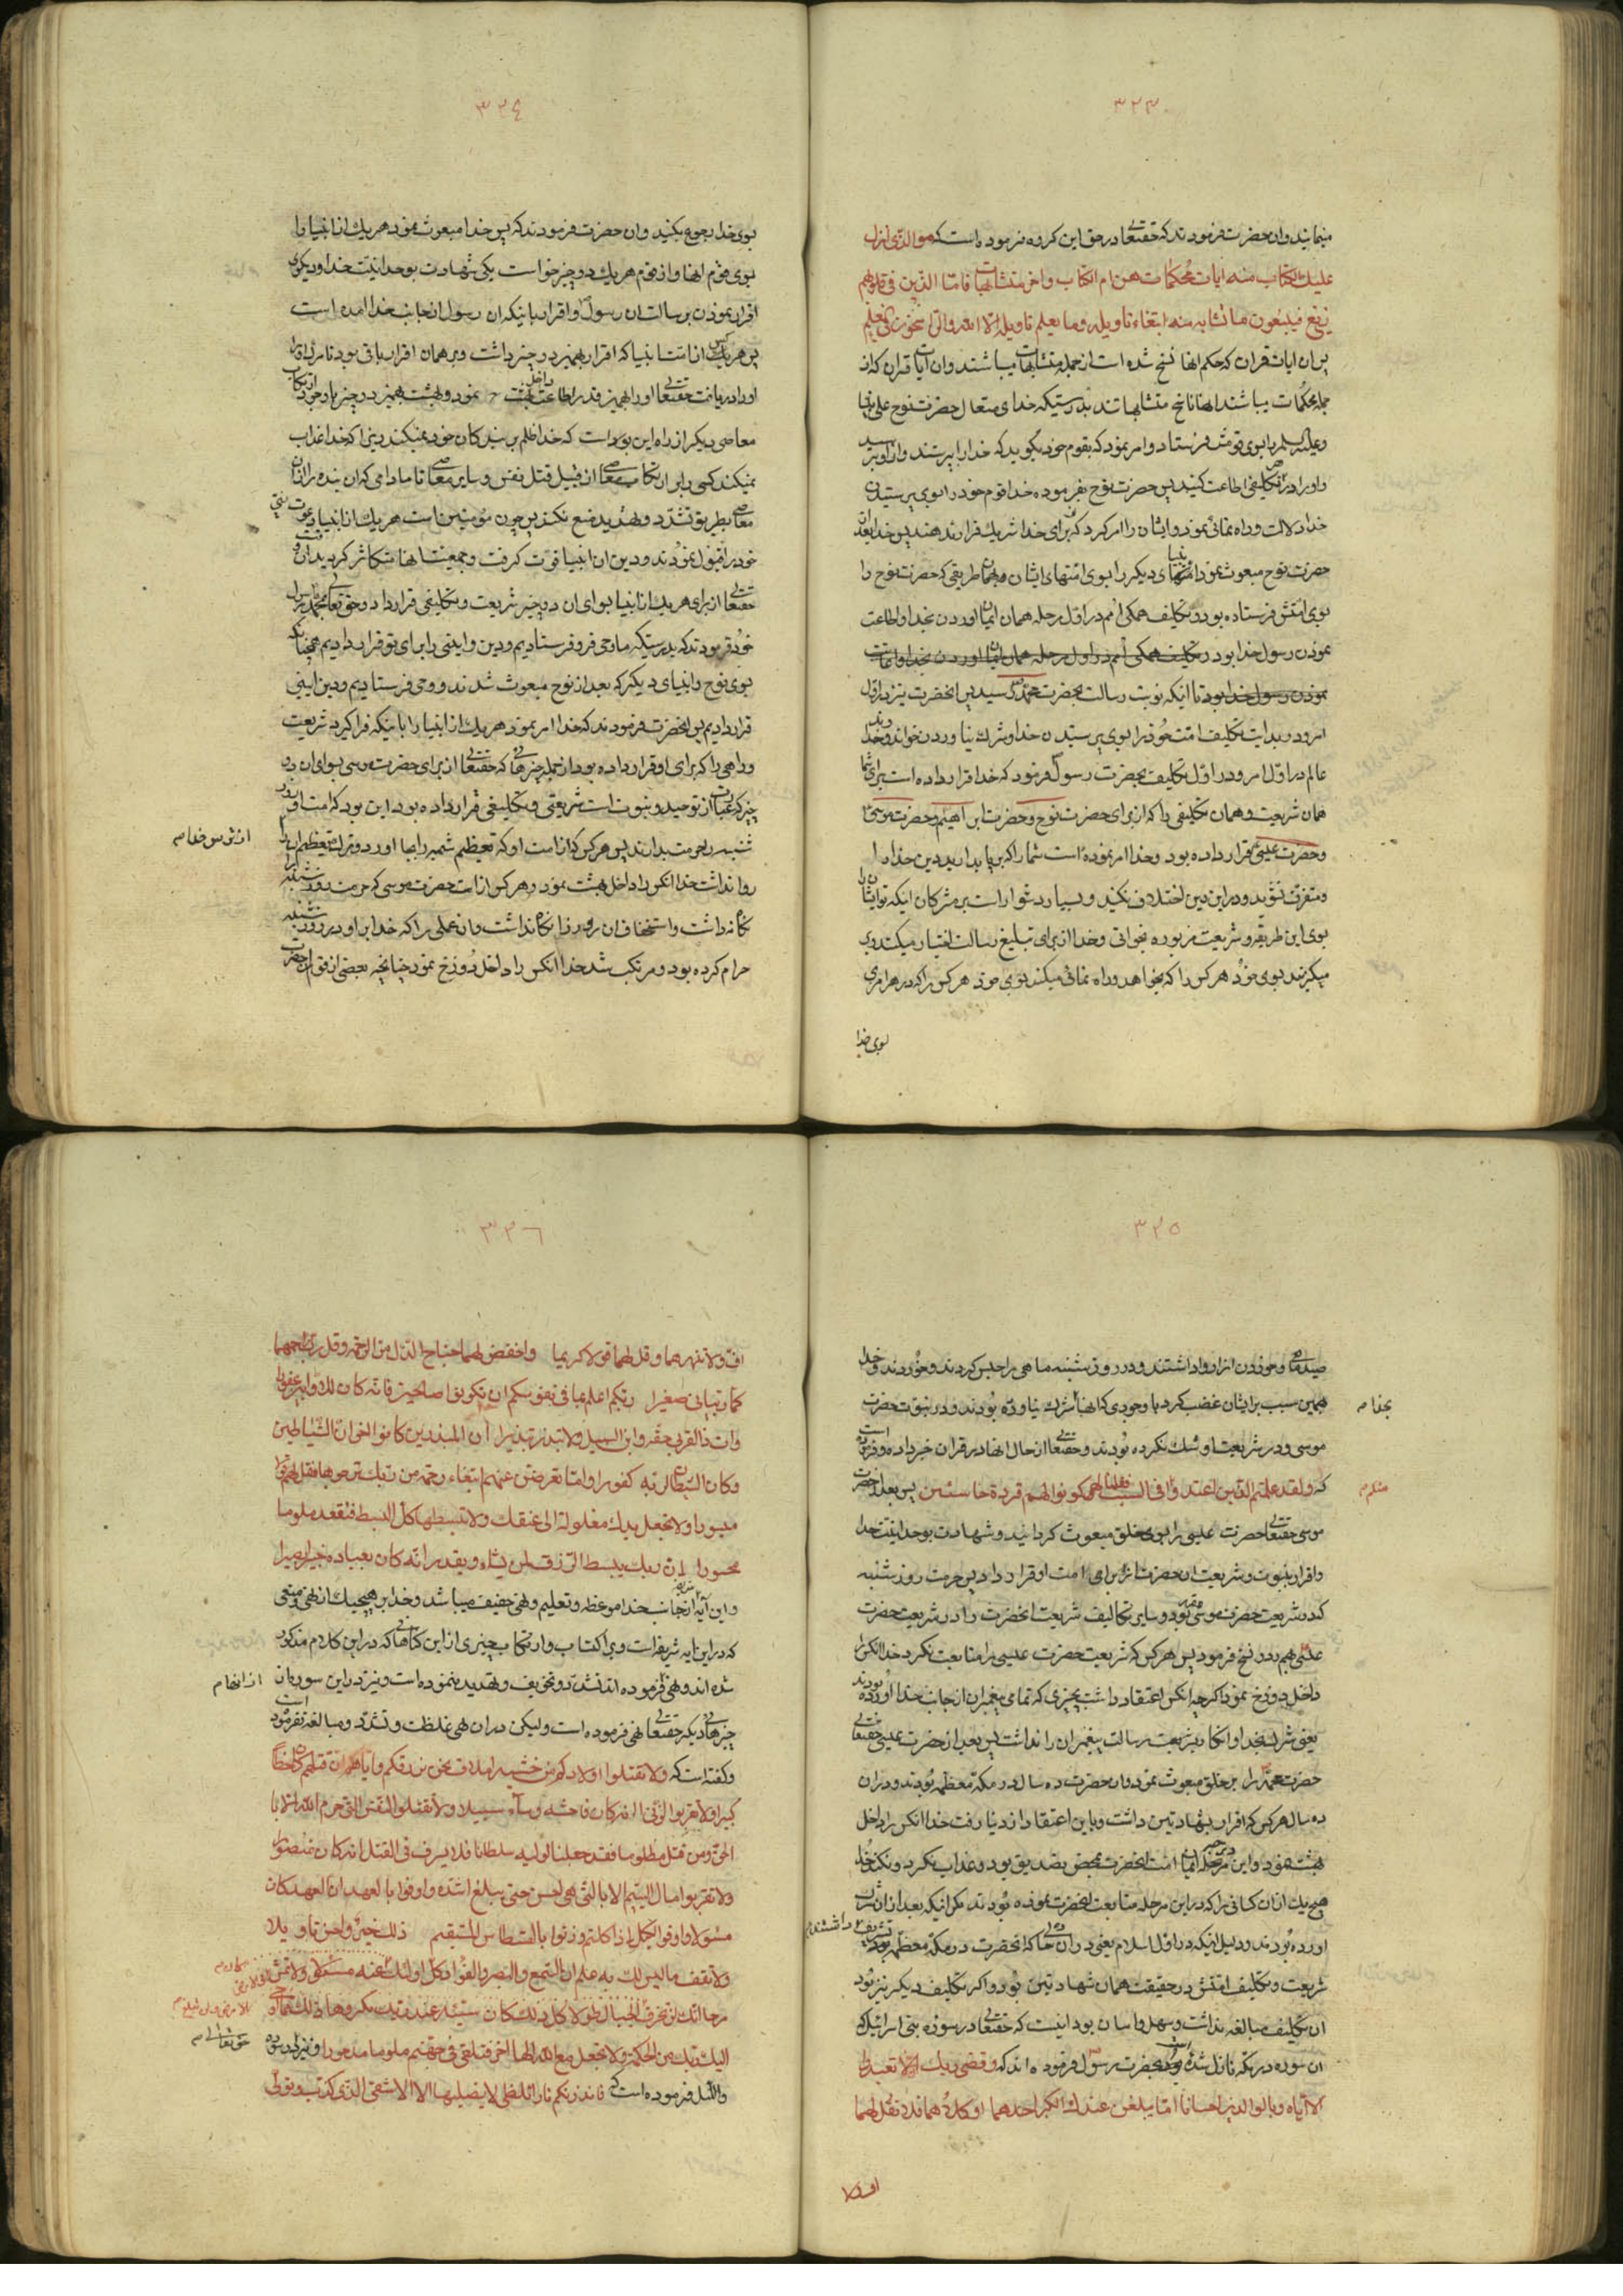 ٣٢٣
مینمایند وان حضرت فرمودند که حقتعا در حق این کروه فرموده است که هو الذی انزل
علیک الکتاب منه ایات محکمات هن ام الکتاب واخر متشابهات فاما الذین فی قلوبهم
زیغ فیتبعون ما تشابه منه ابتغاء تاویله وما یعلم تاویله الا الله والراسخون فی العلم
پس ان ایات قران که حکم انها نسخ شده است از جمله متشابهات میباشند وان ایات قران که از
جمله محکمات میباشند انها ناسخ متشابهاتند بدرستیکه خدای متعال حضرت نوح علی نبینا
وعلیه السلم را بسوی قومش فرستاد وامر نمود که بقوم خود بگوید که خدا را بپرستند واز او بترسید
واو را در تکلیفی اطاعت کنید پس حضرت نوح بفرموده خدا قوم خود را بسوی پرستیدن
خدا دلالت وراه نمائی نمود وایشان را امر کرد که برای خدا شریک قرار ندهند پس خدا بعد از
حضرت نوح مبعوث نمود انبیاهای دیکر را بسوی امتهای ایشان بهمان طریقی که حضرت نوح را
بسوی امتش فرستاده بود وتکلیف همکی امم در اول مرحله همان ایمان اوردن بخدا واطاعت
نمودن رسول خدا بود وتکلیف همکی امم در اول مرحله همان ایمان اوردن بخدا واطاعت
نمودن رسول خدا بود تا انکه نوبت رسالت بحضرت محمد رسید پس انحضرت نیز در اول
امر ودر بدایت تکلیف امت خود را بسوی پرستیدن خدا وشرک نیاوردن خواند وخداوند
عالم در اول امر ودر اول تکلیف بحضرت رسول فرمود که خدا قرار داده است برای شما
همان شریعت وهمان تکلیفی را که از برای حضرت نوح وحضرت ابراهیم وحضرت موسی
وحضرت عیسی قرار داده بود وخدا امر نموده است شما را که بر پا بدارید دین خدا را
ومتفرق نشوید ودر این دین اختلاف نکنید وبسیار دشوار است بر مشرکان اینکه تو ایشان را
بسوی این طریقه وشریعت مزبوره بخوانی وخدا از برای تبلیغ رسالت اختیار میکند وبر
میکزیند بسوی خود هر کس را که بخواهد وراه نمائی میکند بسوی خود هر کس را که در هر امری
بسوی خدا
٣٢٤
بسوی خدا رجوع بکنید وان حضرت فرمودند که پس خدا مبعوث نمود هر یک از انبیا را
بسوی قوم انها واز قوم هر یک دو چیز خواست یکی شهادت بوحدانیت خدا ودیکری
اقرار نمودن برسالت ان رسول واقرار باینکه ان رسول از جانب خدا امده است
پس هر یک از امت انبیا که اقرار بهمین دو چیز داشت وبر همان اقرار باقی بود تا مرک
او را دریافت حقتعا او را بهمین قدر اطاعت داخل بهشت نمود وبهشت بهمین دو چیز با وجود ارتکاب
معاصی دیکر از راه این بوده است که خدا ظلم بر بندکان خود نمیکند زیرا که خدا عذاب
نمیکند کسی را بر ارتکاب معاصی از قبیل قتل نفس وسایر معاصی تا مادامی که ان بنده را از ان
معاصی بطریق تشدد وتهدید منع نکند پس چون مومنین امت هر یک از انبیا دعوت نبی
خود را قبول نمودند ودین ان انبیا قوت کرفت وجمعیت انها متکاثر کردید ان وقت
حقتعالی از برای هر یک از انبیا سوای ان دو چیز شریعت وتکلیفی قرار داد وحق تعالی بمحمد رسول
خود فرمودند که بدرستیکه ما وحی فرو فرستادیم ودین وایینی را برای تو قرار دادیم همچنانکه
بسوی نوح وانبیای دیکر که بعد از نوح مبعوث شدند ووحی فرستادیم ودین ایینی
قرار دادیم پس انحضرت فرمودند که خدا امر نمود هر یک از انبیا را باینکه فرا کیرد شریعت
وراهی را که برای او قرار داده بود از جمله چیزهائی که حقتعالی از برای حضرت موسی سوای ان دو
چیز که عبارت از توحید ونبوت است شریعتی وتکلیفی قرار داده بود این بود که امت او روز
شنبه را حرمت بدارند پس هر کس که از امت او که تعظیم شنبه را بجا اورد وترک تعظیم ان را
روا نداشت خدا انکس را داخل بهشت نمود وهر کس از امت حضرت موسی که حرمت روز شنبه
نکاه نداشت واستخفاف ان روز روا نکاه داشت وان عملی را که خدا بر او در روز شنبه
حرام کرده بود ومرتکب شد خدا انکس را داخل دوزخ نمود چنانچه بعضی از قوم انحضرت
از ترس خدا م
٣٢٥
صید ماهی وخوردن انرا روا داشتند ودر روز شنبه ماهی را حبس کردند وخوردند وخدا
بهمین سبب بر ایشان غضب کرد با وجودی که انها شرک نیاورده بودند ودر نبوت حضرت
بخدا م
موسی ودر شریعت او شک نکرده بودند وحقتعالی از حال انها در قران خبر داده وفرموده است
که ولقد علمتم الذین اعتدوا منکم فی السبت فقلنا لهم کونوا لهم قردة خاسئین پس بعد از حضرت
منکم م
موسی حقتعالی حضرت عیسی را بسوی خلق مبعوث کردانید وشهادت بوحدانیت خدا
واقرار بنبوت وشریعت ان حضرت از برای امت او قرار داد پس حرمت روز شنبه
که در شریعت حضرت موسی مقرر بود وسایر تکالیف شریعت انحضرت را در شریعت حضرت
عیسی بهم زد ونسخ فرمود پس هر کس که شریعت حضرت عیسی را متابعت نکرد خدا انکس را
داخل دوزخ نمود اکرچه انکس اعتقاد داشت بچیزی که تمامی پیغمبران از جانب خدا اورده بودند
یعنی شرک بخدا وانکار بشریعت رسالت پیغمبران را نداشت پس بعد از حضرت عیسی حقتعالی
حضرت محمد را بر خلق مبعوث نمود وان حضرت ده سال در مکه معظمه بودند ودر ان
ده سال هر کس که اقرار بشهادتین داشت وباین اعتقاد از دنیا رفت خدا انکس را داخل
بهشت نمود واین مرحله ایمان امت انحضرت محض تصدیق بود وعذاب نکرد ونکند خدا
هیچ یک از ان کسانی را که در این مرحله متابعت انحضرت نموده بودند مکر انیکه بعد از ان شرک
اورده بودند ودلیل اینکه در اول اسلام یعنی در ان ده سال که انحضرت در مکه معظمه بودند
تشریف داشتند م
شریعت وتکلیف امتش در حقیقت همان شهادتین بود واکر تکلیف دیکر نیز بود
ان تکلیف مبالغه نداشت وسهل واسان بود اینست که حقتعالی در سوره بنی اسرائیل که
ان سوره در مکه نازل شده است بحضرت رسول فرموده اند که وقضی ربک الا تعبدوا
الا ایاه وبالوالدین احسانا اما یبلغن عندک الکبر احدهما او کلاهما فلا تقل لهما
اف ولا
٣٢٦
اف ولا تنهرهما وقل لهما قولا کریما واخفض لهما جناح الذل من الرحمة وقل رب ارحمهما
کما ربیانی صغیرا ربکم اعلم بما فی نفوسکم ان تکونوا صالحین فانه کان للاوابین غفورا
وات ذا القربی حقه وابن السبیل ولا تبذر تبذیرا ان المبذرین کانوا اخوان الشیاطین
وکان الشیطان لربه کفورا واما تعرضن عنهم ابتغاء رحمة من ربک ترجوها فقل لهم قولا
میسورا ولا تجعل یدک مغلولة الی عنقک ولا تبسطها کل البسط فتقعد ملوما
محسورا ان ربک یبسط الرزق لمن یشاء ویقدر انه کان بعباده خبیرا بصیرا
واین آیه شریفه از جانب خدا موعظه وتعلیم ونهی خفیف میباشد وخدا بر هیچیک از نهی ومنهی
که در این ایه شریفه است وبر اکتساب وارتکاب چیزی از این کناهانی که در این کلام مذکور
شده اند ونهی فرموده اند تشدد وتخویف وتهدید ننموده است ونیز در این سوره از ان
از انها م
چیزهائی دیکر حقتعالی نهی فرموده است ولیکن در ان نهی غلظت وتشدد ومبالغه نفرموده است
وکفته است که ولا تقتلوا اولادکم من خشیه املاق نحن نرزقکم وایاهم ان قتلهم کان خطأ
کبیرا ولا تقربوا الزنی انه کان فاحشه وساء سبیلا ولا تقتلوا النفس التی حرم الله الا با
الحق ومن قتل مظلوما فقد جعلنا لولیه سلطانا فلا یسرف فی القتل انه کان منصورا
ولا تقربوا مال الیتیم الا بالتی هی احسن حتی یبلغ اشده واوفوا بالعهد ان العهد کان
مسؤلا واوفوا الکیل اذا کلتم وزنوا بالقسطاس المستقیم ذلک خیر واحسن تاویلا
ولا تقف ما لیس لک به علم ان السمع والبصر والفؤاد کل اولئک کان عنه مسؤلا ولا تمش فی الارض
مرحا انک لن تخرق الجبال طولا کل ذلک کان سیئه عند ربک مکروها ذلک مما اوحی
الیک ربک من الحکمة ولا تجعل مع الله الها اخر فتلقی فی جهنم ملوما مدحورا ونیز در سوره
حق تعالی م
واللیل فرموده است که فانذرتکم نارا تلظی لا یصلیها الا الاشقی الذی کذب وتولی